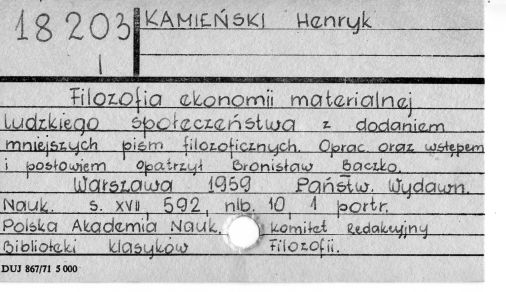 18203
I
KAMIEŃSKI Henryk
Filozofia ekonomii materialnej
ludzkiego społeczeństwa z dodaniem
mniejszych pism filozoficznych. Oprac. oraz wstępem
i posłowiem opatrzył Bronisław Baczko.
Warszawa 1959 Państw. Wydawn.
Nauk. s. XVII, 592, nlb. 10, 1 portr.
Polska Akademia Nauk. Komitet Redakcyjny
Biblioteki klasyków Filozofii.
DUJ 867/71 5 000